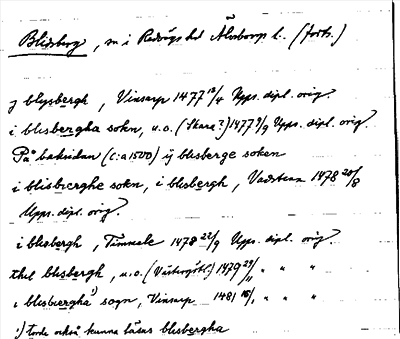 Blidsberg, sn i Redvägs hd Älvsborgs l. (forts.)
j blysbergh, Vinsarp 1477 13/4 Upps. dipl. orig.
i blisbergha sokn, u.o. (Skara?) 1477 9/9 Upps. dipl. orig.
På baksidan (c:a 1500) ij blisberge soken
i blisbierghe sokn, i blisbergh, Vadstena 1478 20/8
Upps. dipl. orig.
i blisbergh, Timmele 1478 22/9 Upps. dipl. orig.
thet blesbergh, u.o. (Västergötl.) 1479 29/11 " " "
i blesbiergha¹) sogn, Vinsarp 1481 15/1 " " "
¹) torde också kunna läsas blesbergha